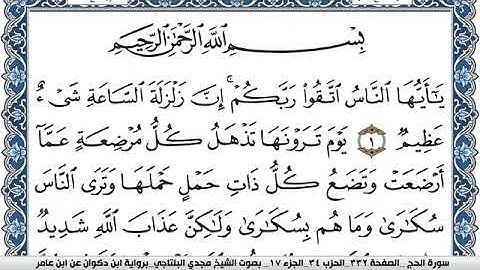 بِسْمِ اللَّهِ الرَّحْمَٰنِ الرَّحِيمِ
يَـٰٓأَيُّهَا النَّاسُ اتَّقُوا۟ رَبَّكُمْ ۚ إِنَّ زَلْزَلَةَ السَّاعَةِ شَىْءٌ
عَظِيمٌ ١ يَوْمَ تَرَوْنَهَا تَذْهَلُ كُلُّ مُرْضِعَةٍ عَمَّآ
أَرْضَعَتْ وَتَضَعُ كُلُّ ذَاتِ حَمْلٍ حَمْلَهَا وَتَرَى النَّاسَ
سُكَـٰرَىٰ وَمَا هُم بِسُكَـٰرَىٰ وَلَـٰكِنَّ عَذَابَ اللَّهِ شَدِيدٌ
سورة الحج _الصفحة ٣٣٢_الحزب ٣٤_الجزء ١٧_ بصوت الشيخ مجدي البلتاجي_برواية ابن ذكوان عن ابن عامر